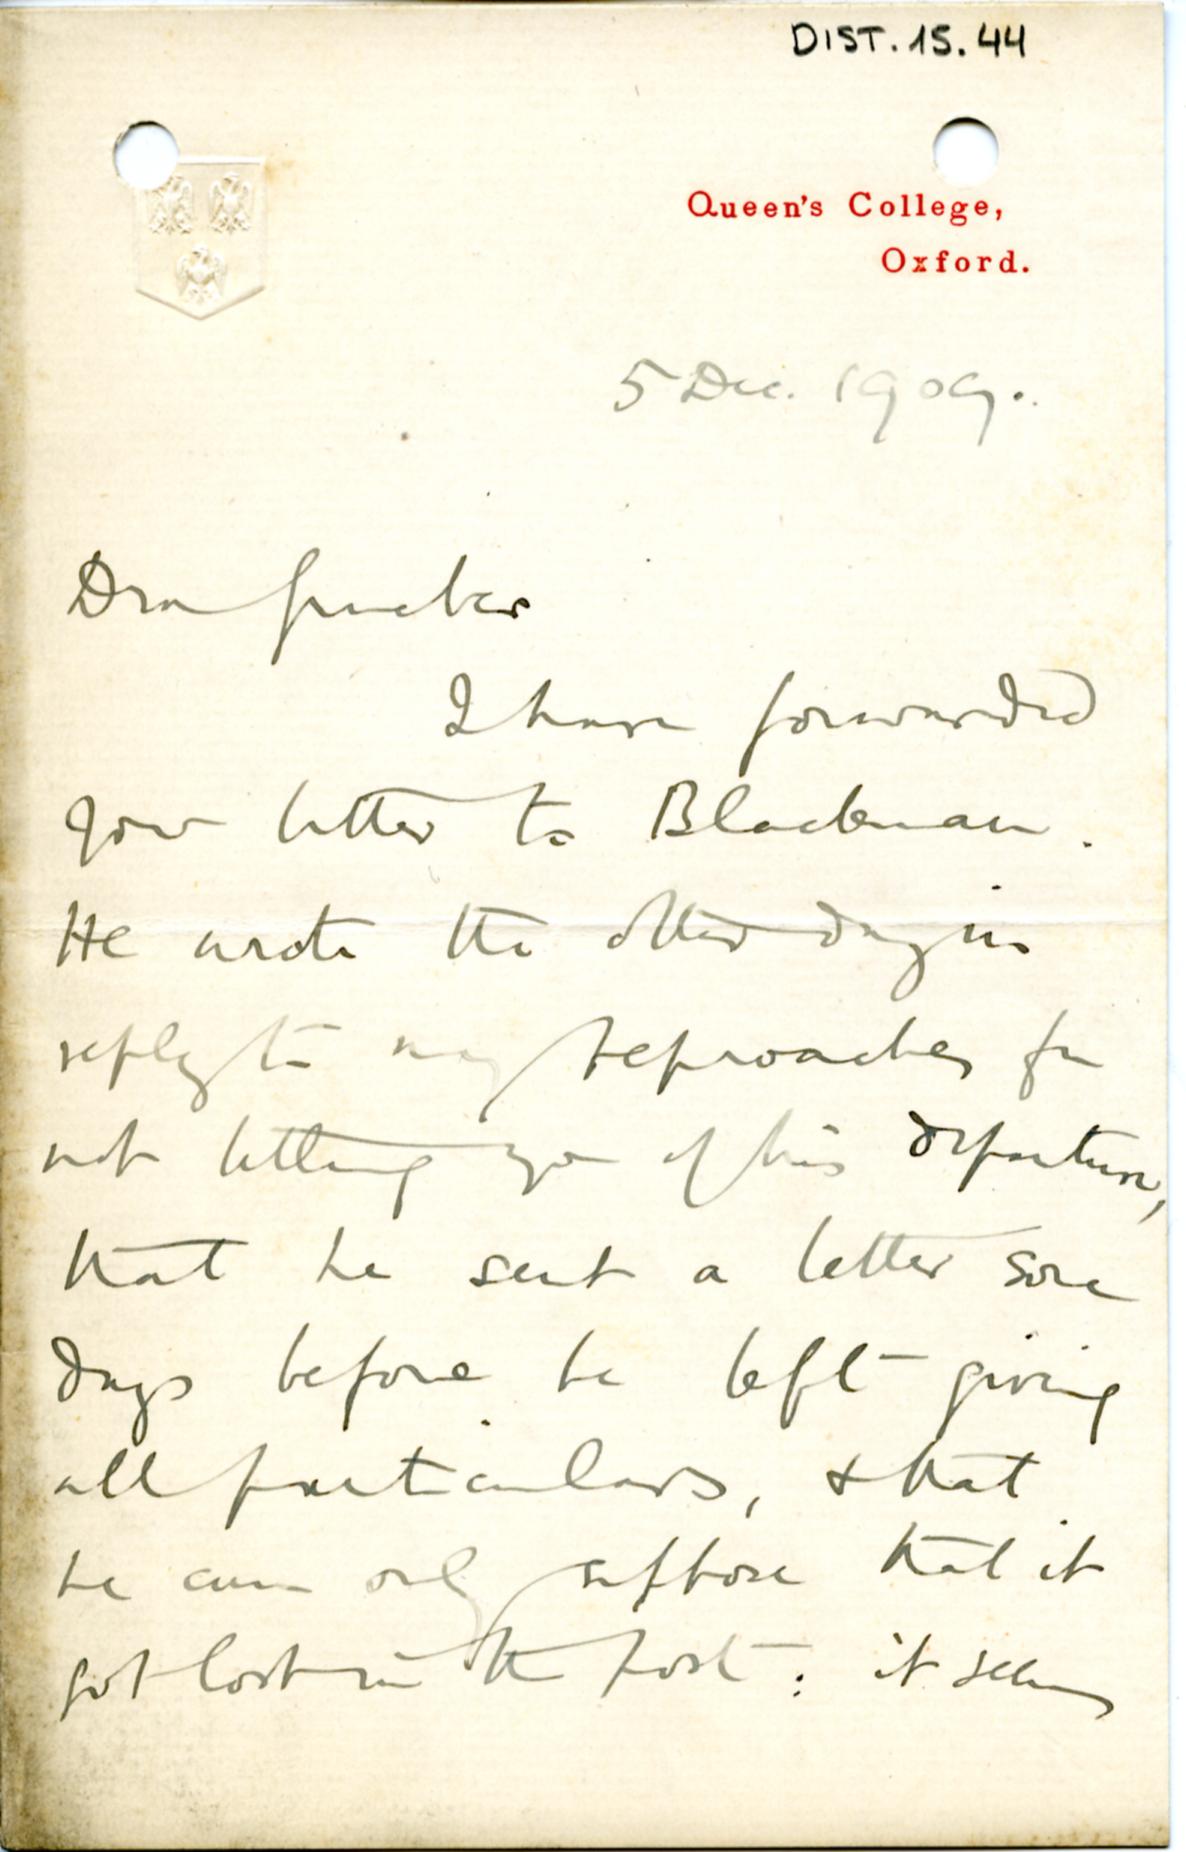 DIST.15.44
Queen's College,
Oxford.
5 Dec. 1909.
Dear Grueber
I have forwarded
your letter to Blackman.
He wrote the other day in
reply to my reproaches for
not telling you of his departure,
that he sent a letter some
days before he left giving
all particulars, & that
he can only suppose that it
got lost in the post: it seems